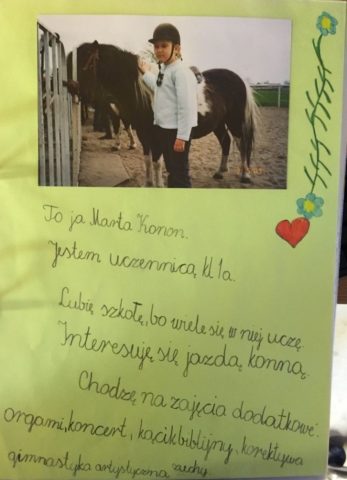 To ja Marta Konon.
Jestem uczennicą kl 1a.
Lubię szkołę, bo wiele się w niej uczę.
Interesuję się jazdą konną.
Chodzę na zajęcia dodatkowe:
orgami, koncert, kącik biblijny, korektywa
gimnastyka artystyczna zuchy